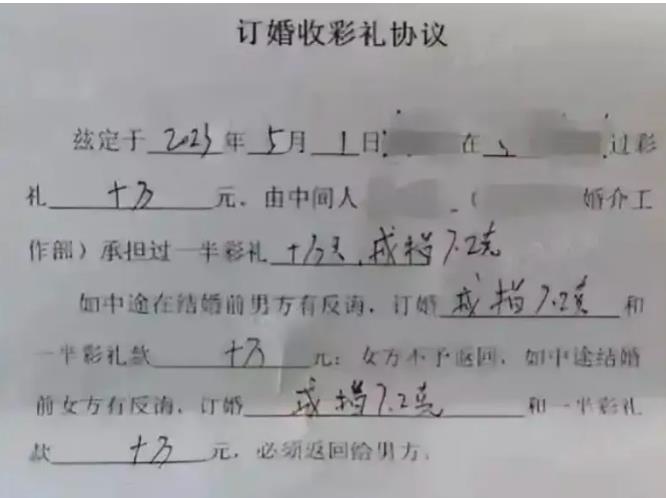 订婚收彩礼协议
兹定于2023年5月1日在过彩
礼十万元，由中间人（婚介工
作部）承担过一半彩礼十万元，戒指7.2克
如中途在结婚前男方有反悔，订婚戒指7.2克和
一半彩礼款十万元；女方不予返回，如中途结婚
前女方有反悔，订婚戒指7.2克和一半彩礼
款十万元，必须返回给男方。